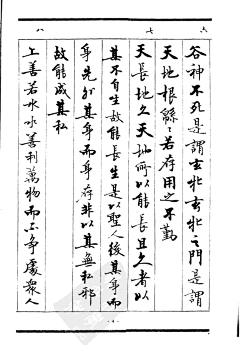 六
七
八
谷神不死是謂玄牝玄牝之門是謂
天地根綿々若存用之不勤
天長地久天地所以能長且久者以
其不自生故能長生是以聖人後其身而
身先外其身而身存非以其無私邪
故能成其私
上善若水水善利萬物而不争處衆人